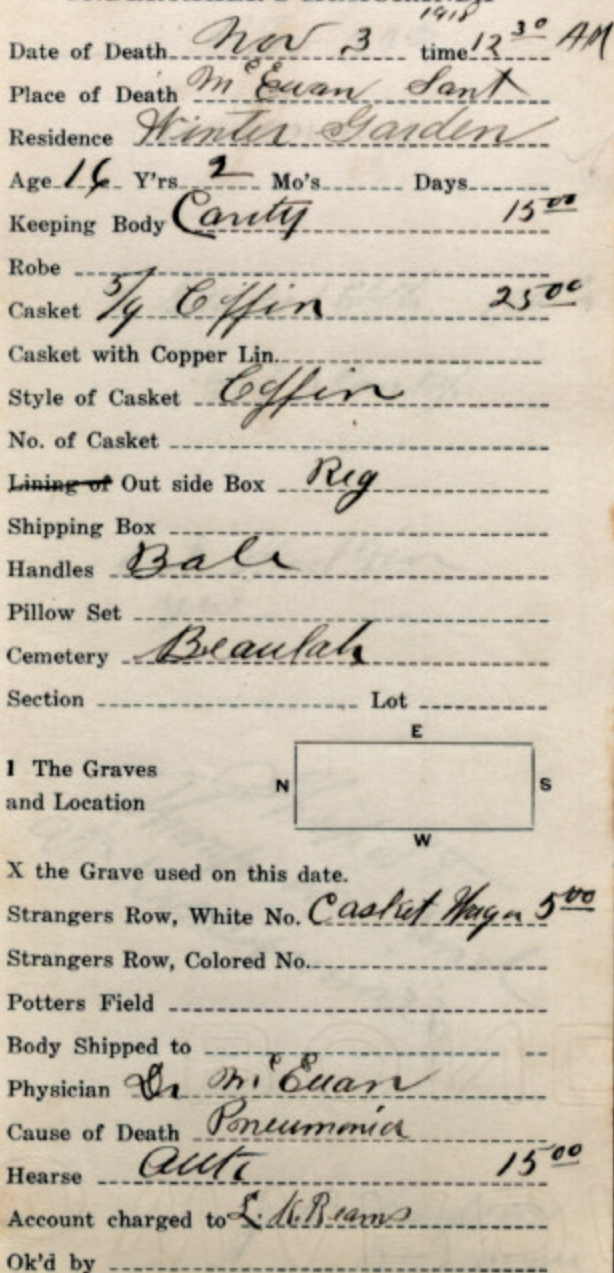 1918
Date of Death Nov 3 time 12 30 AM
Place of Death McEwan Sant
Residence Winter Garden
Age 16 Y'rs 2 Mo's Days
Keeping Body Cavity 15 00
Robe
Casket 5/9 Coffin 25 00
Casket with Copper Lin.
Style of Casket Coffin
No. of Casket
Lining of Out side Box Reg
Shipping Box
Handles Bale
Pillow Set
Cemetery Beaulah
Section Lot
E
1 The Graves
and Location
N S
W
X the Grave used on this date.
Strangers Row, White No. Casket Wagon 5 00
Strangers Row, Colored No.
Potters Field
Body Shipped to
Physician Dr McEwan
Cause of Death Pneumonia
Hearse Auto 15 00
Account charged to L. K. Beams
Ok'd by